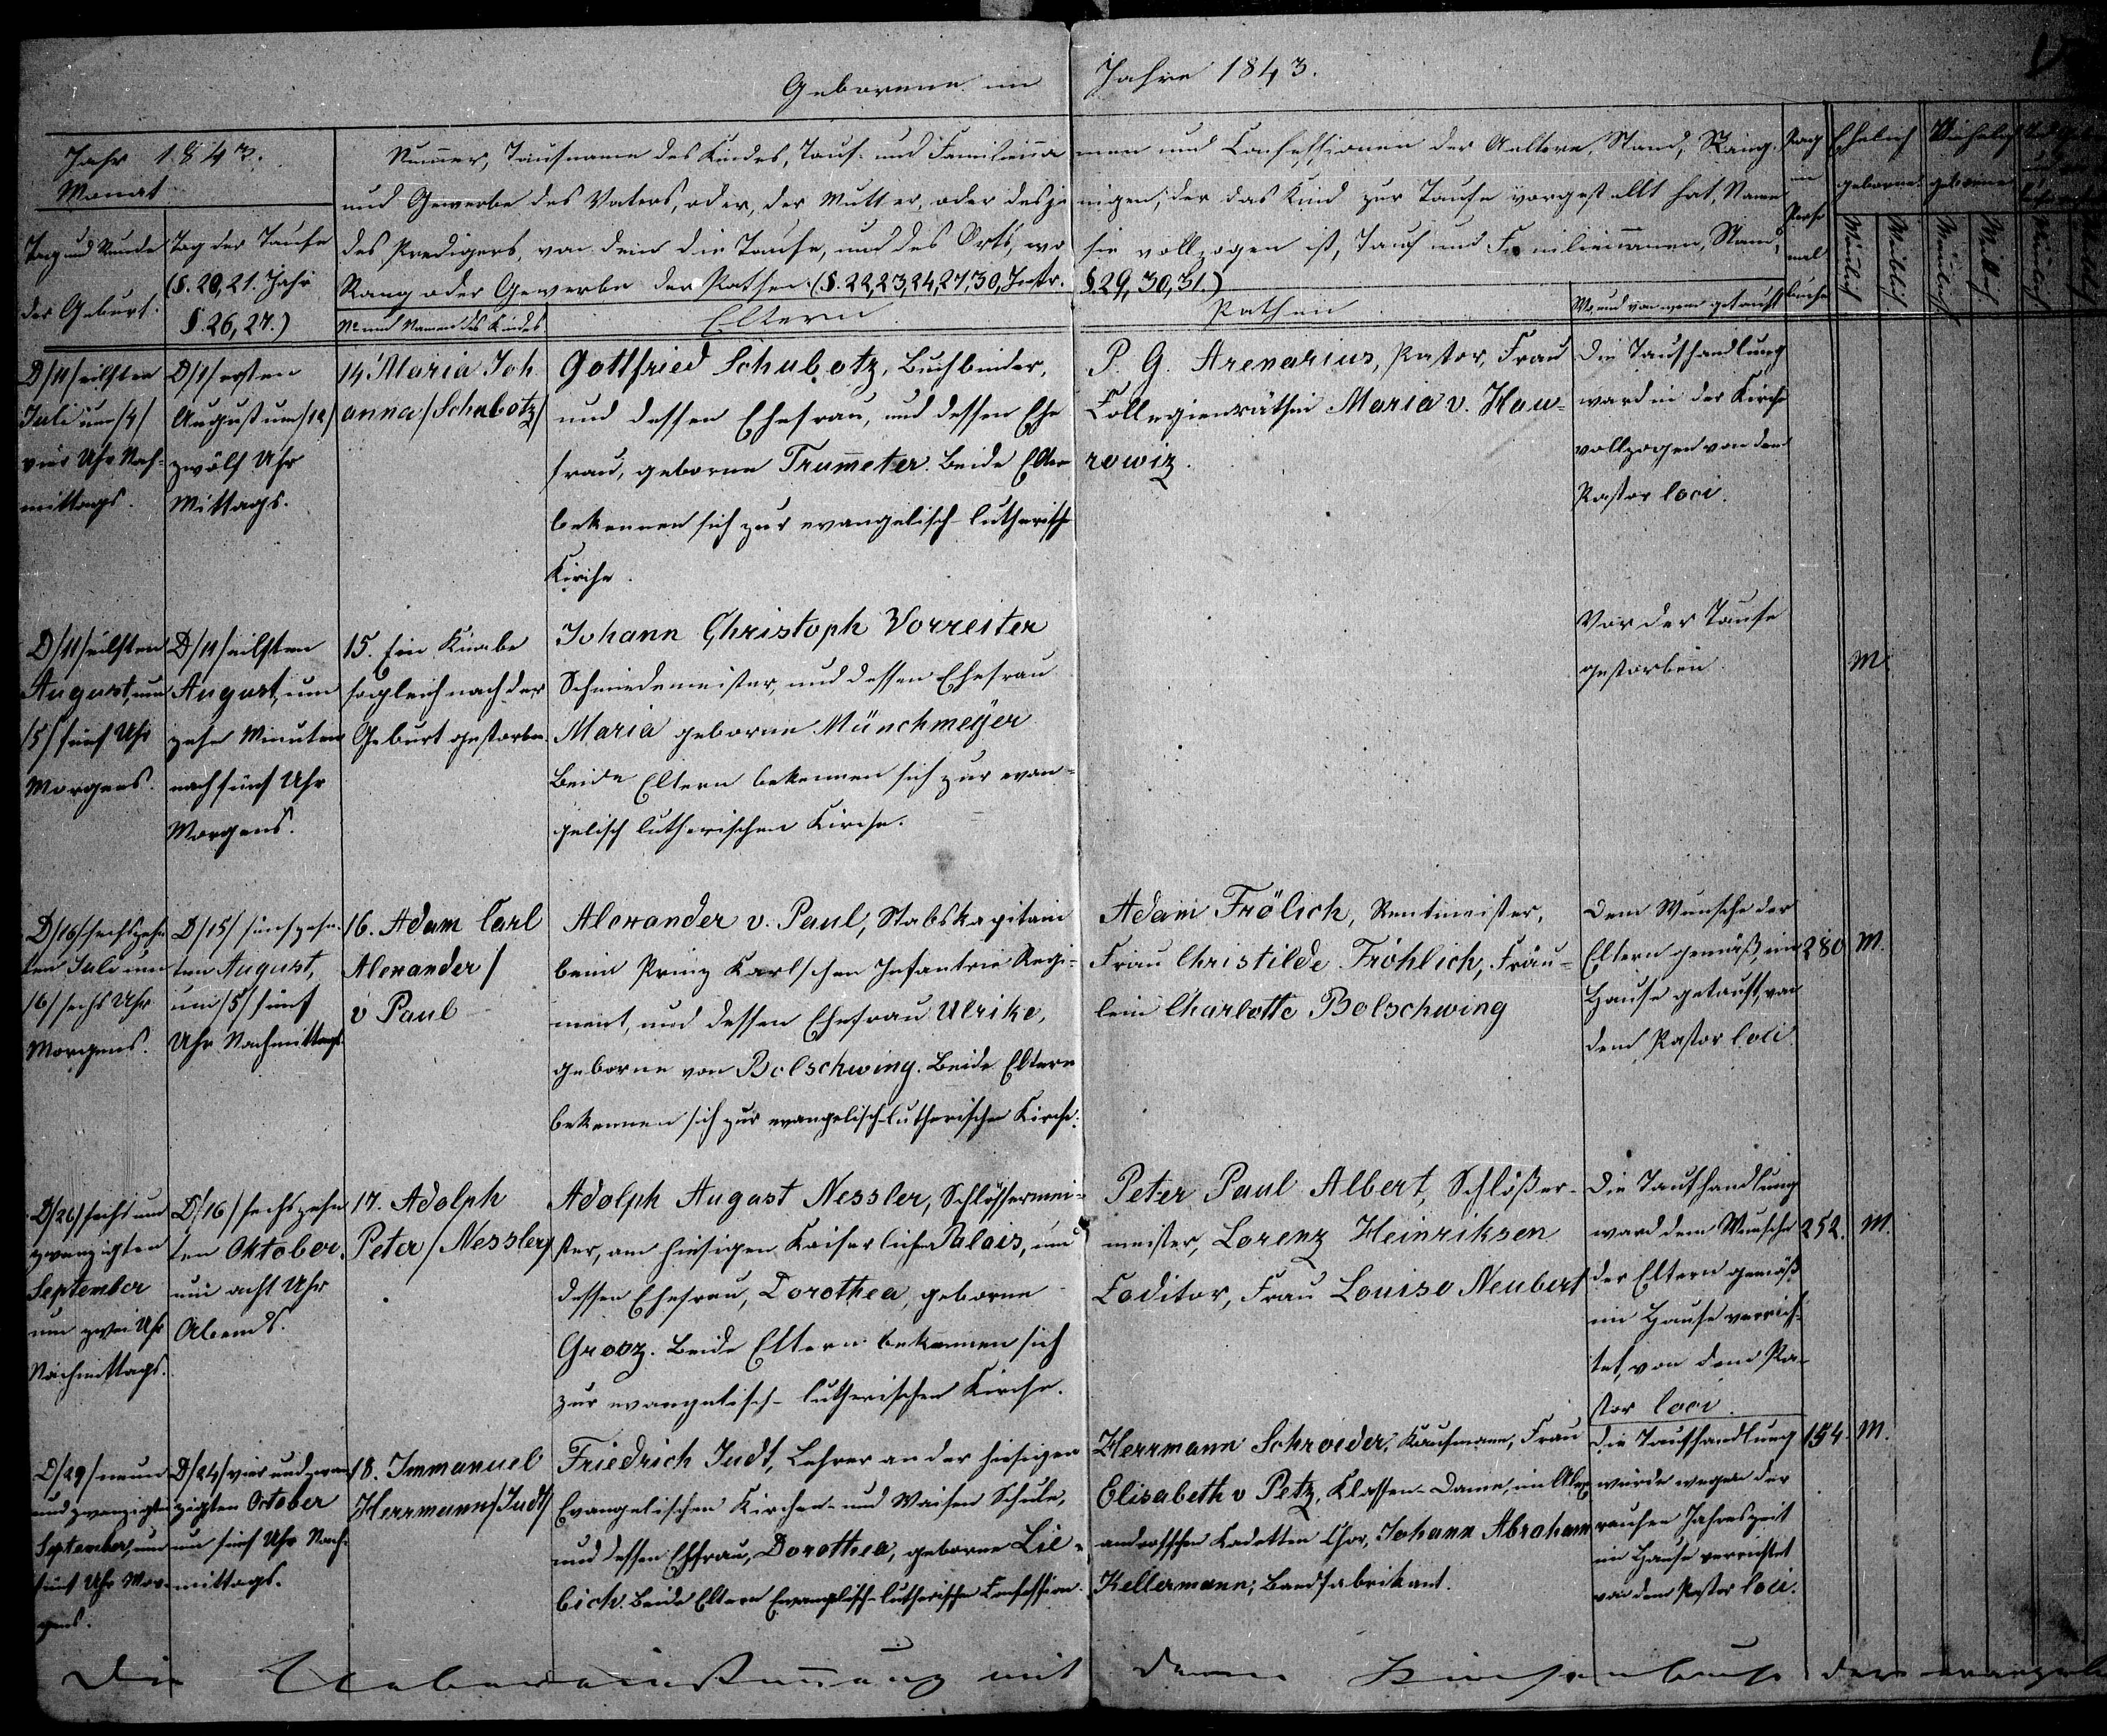 Geborene im Jahre 1843.
Jahr 1843.
Monat
Tag und Stunde
der Geburt.
Tag der Taufe
(§. 20, 21. Jahr
§. 26, 27.)
Nummer, Taufname des Kindes, Tauf- und Familienna men und Confessionen der Aeltern, Stand, Rang
und Gewerbe des Vaters, oder, der Mutter, oder desje nigen, der das Kind zur Taufe vorgestellt hat, Name
des Predigers, von dem die Taufe, und des Orts, wo sie vollzogen ist, Tauf und Familiennamen, Stand,
Rang oder Gewerbe der Pathen (§. 22, 23, 24, 27, 30, Instr. §. 29, 30, 31.)
No und Namen des Kindes
Eltern
Pathen
Wo, und von wem getauft
Pag
im
Perso
nal
buche
Ehelich
geborene
Unehelich
geborene
Männlich
Weiblich
Männlich
Weiblich
Männlich
D/11/eilften
Juli um /4/
vier Uhr Nach-
mittags.
D/1/ersten
August um /12/
zwölf Uhr
Mittags.
14 Maria Joh
anna /Schubotz/
Gottfried Schubotz, Buchbinder,
und dessen Ehefrau, und dessen Ehe
frau, geborne Trum̄eter. Beide Eltern
bekennen sich zur evangelisch-lutherische
Kirche.
P. G. Arenarius, Pastor, Frau
Collegienräthin Maria v. Hau-
rowiz.
Die Taufhandlung
ward in der Kirche
vollzogen von dem
Pastor loci.
D/11/eilften
August, um
/5/ fünf Uhr
Morgens.
D/11/eilften
August, um
zehn Minuten
nach fünf Uhr
Morgens.
15. Ein Knabe
sogleich nach der
Geburt gestorben.
Johann Christoph Vorreiter
Schmiedemeister, und dessen Ehefrau
Maria geborne Münchmeÿer
Beide Eltern bekennen sich zur evan-
gelisch lutherischen Kirche.
Vor der Taufe
gestorben.
M
D/16/sechszehn
ten Juli um
/6/ sechs Uhr
Morgens.
D/15/ fünfzehn
ten August,
um /5/ fünf
Uhr Nachmittags.
16. Adam Carl
Alexander /
v Paul
Alexander v. Paul, Stabskapitain
beim Prinz Karlschen Infantrie Regi-
ment, und dessen Ehefrau Ulrike,
geborne von Bolschwing. Beide Eltern
bekennen sich zur evangelisch-lutherischen Kirche.
Adam Frölich, Rentmeister,
Frau Christilde Fröhlich, Fräu-
lein Charlotte Bolschwing
Dem Wunsche der
Eltern gemäß, im
Hause getauft, von
dem Pastor loci.
280
M.
D/26/sechs und
zwanzigten
September
um zwei Uhr
Nachmittags.
D/16/ sechszehn
ten Oktober
um acht Uhr
Abends.
17. Adolph
Peter /Nessler/
Adolph August Nessler, Schlössermei-
ster, am hiesigen Kaiserlichen Palais, und
dessen Ehefrau, Dorothea, geborne
Grooz. Beide Eltern bekennen sich
zur evangelisch-lutherischen Kirche.
Peter Paul Albert, Schlößer-
meister, Lorenz Heinriksen
Conditor, Frau Louise Neubert
Die Taufhandlung
ward dem Wunsche
der Eltern gemäß
im Hause verrich-
tet, von dem Pa-
stor loci.
252.
M.
D/29/neun
und zwanzigten
September, um
fünf Uhr Mor-
gens.
D/24/vier und zwan
zigten October
um fünf Uhr Nach-
mittags.
18. Immanuel
Herrmann /Judt/
Friedrich Judt, Lehrer an der hiesigen
Evangelischen Kirchen- und Waisen Schule,
und dessen Ehfrau, Dorothea, geborne Lie-
bich. Beide Eltern Evangelisch-lutherische Confession.
Herrmann Schroeder, Kaufmann, Frau
Elisabeth v Petz, Klassen-Dame, im Alex
androffschen Kadetten Chor, Johann Abraham
Kellermann, Bandfabrikant.
Die Taufhandlung
wurde wegen der
rauhen Jahreszeit
im Hause verrichtet
von dem Pastor loci.
154.
M.
Die Uebereinstim̄ung mit dem Kirchenbuche der evangel